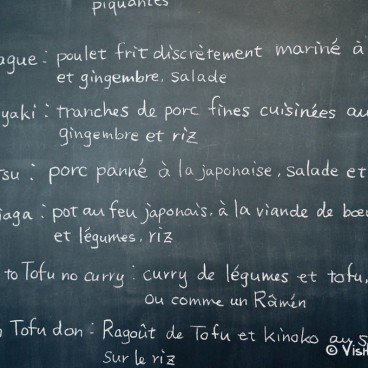 piquantes
ague : poulet frit discrètement mariné à
et gingembre, salade
yaki : tranches de porc fines cuisinées au
gingembre et riz
su : porc panné à la japonaise, salade et
aga : pot au feu japonais, à la viande de bœu
et légumes, riz
to Tofu no curry : curry de légumes et tofu,
ou comme un Râmen
Tofu don : Ragoût de Tofu et kinoko au s
sur le riz
© Visi